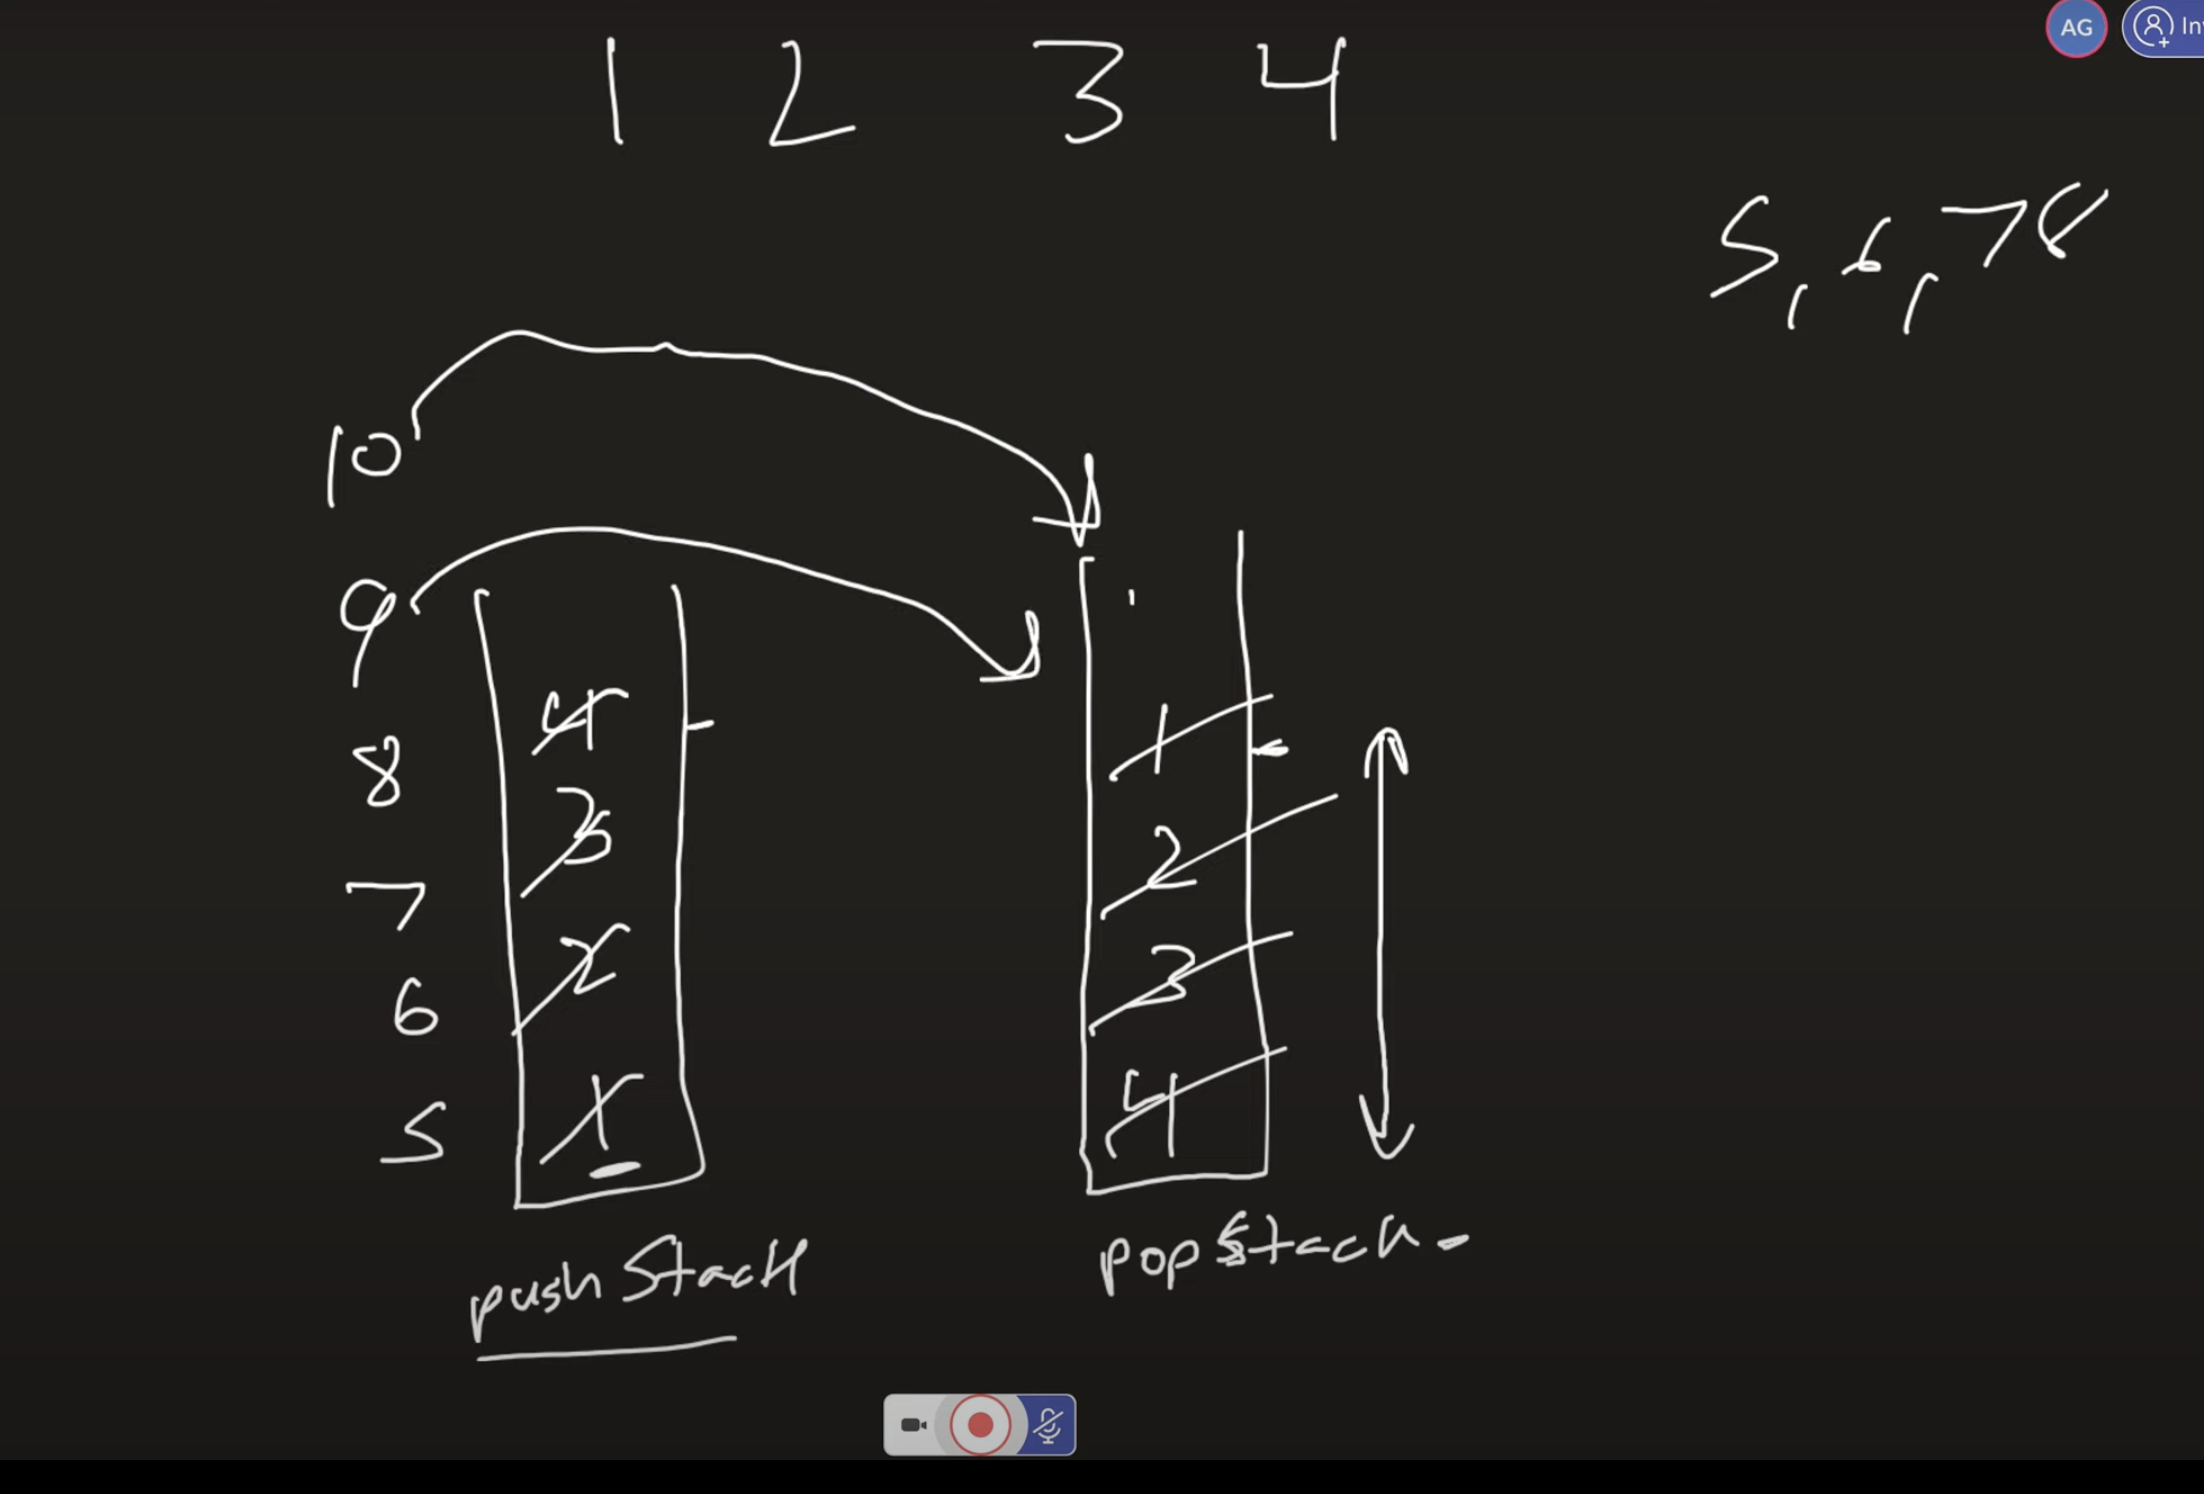 AG
In
1 2 3 4
5, 6, 7 8
10
9
8
7
6
5
4
3
2
1
1
2
3
4
push Stack
pop Stack